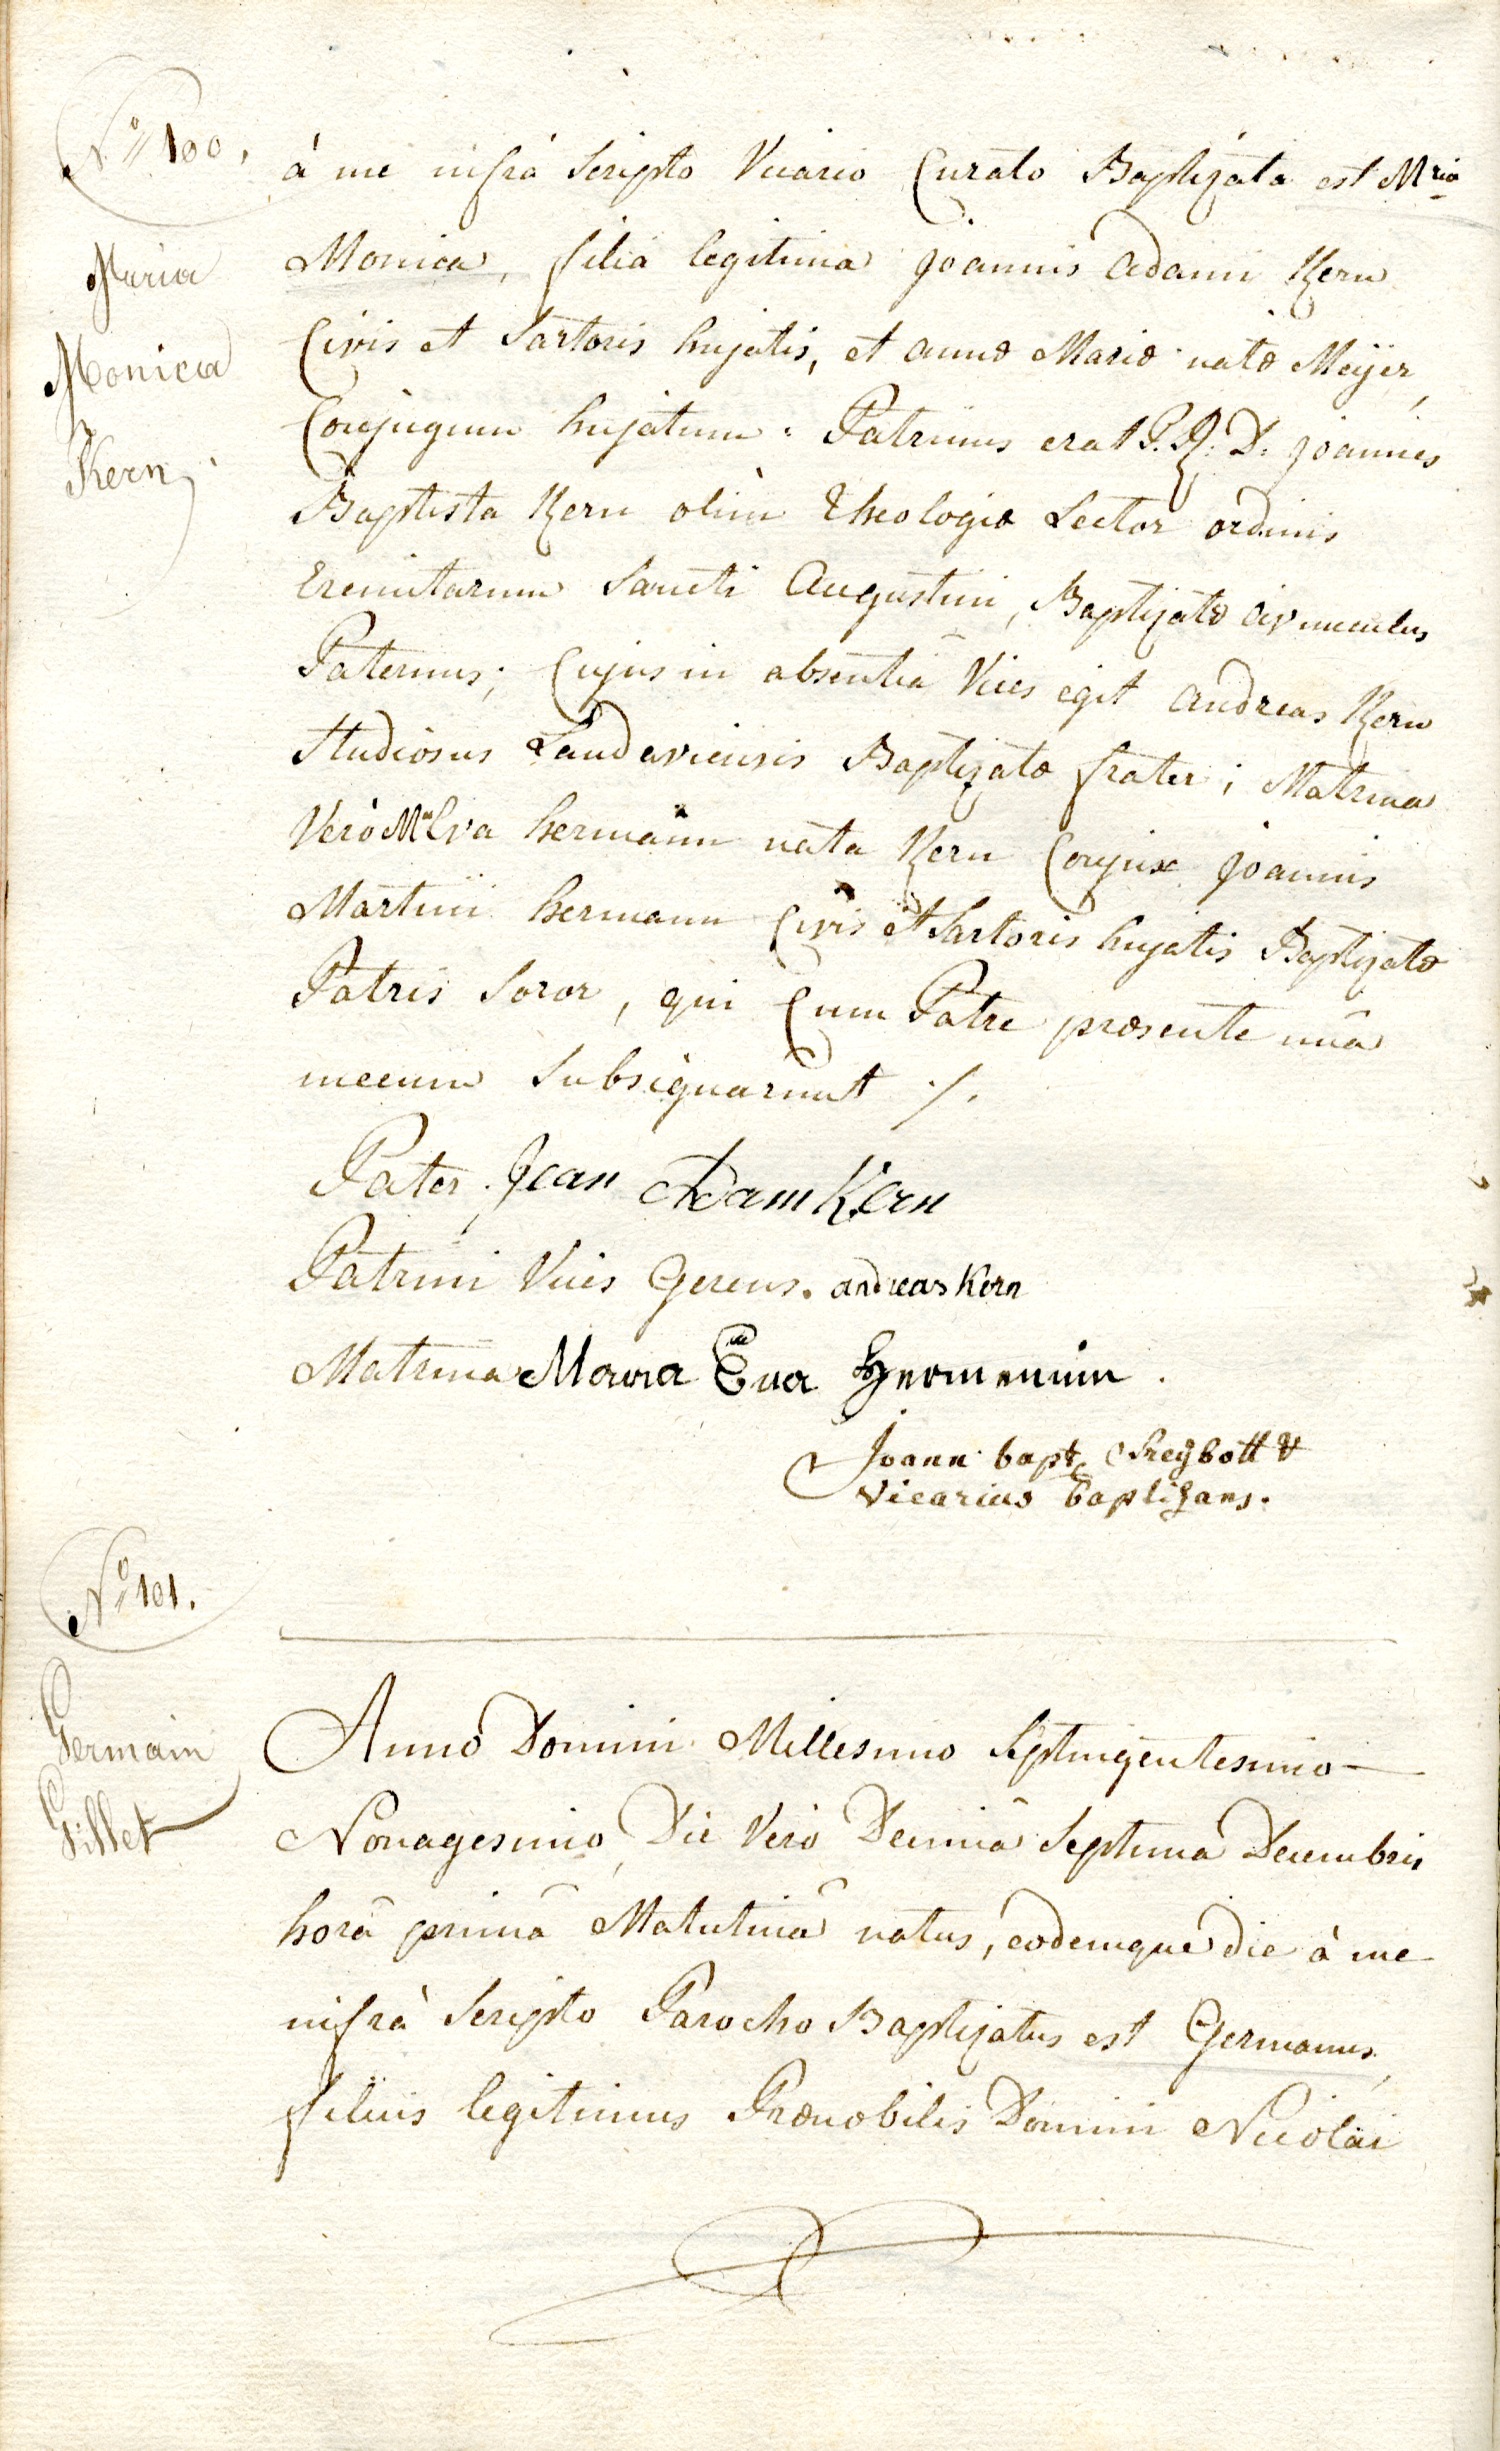 Nº 100.
Maria
Monica
Kern
à me infrà scripto Vicario Curato Baptizata est Mria
Monica, filia legitima Joannis Adami Kern
Civis et Sartoris hujatis, et annæ Mariæ natæ Meÿer,
Conjugum hujatum: Patrinus erat P. R. D. Joannes
Baptista Kern olim Theologiæ Lector ordinis
Eremitarum Sancti Augustini, Baptizatæ avunculus
Paternus; Cujus in absentiâ Vices egit Andreas Kern
Studiosus Landaviensis Baptizatæ frater; Matrina
Verò Ma Eva Hermann nata Kern Conjux Joannis
Martini Hermann Civis et Sartoris hujatis Baptizatæ
Patris Soror, qui Cum Patre præsente unà
mecum Subsignarunt ./.
Pater Jean Adam Kern
Patrini Vices Gerens. andreas Kern
Matrina Maria Eva Hermenin.
Joann bapt
Vicarius baptizans.
Nº 101.
Germain
Gillet
Anno Domini Millesimo Septingentesimo
Nonagesimo, Die Verò Decimâ Septimâ Decembris
horâ primâ Matutinâ natus, eodemque die à me
infrà Scripto Parocho Baptizatus est Germanus,
filius legitimus Prænobilis Domini Nicolai